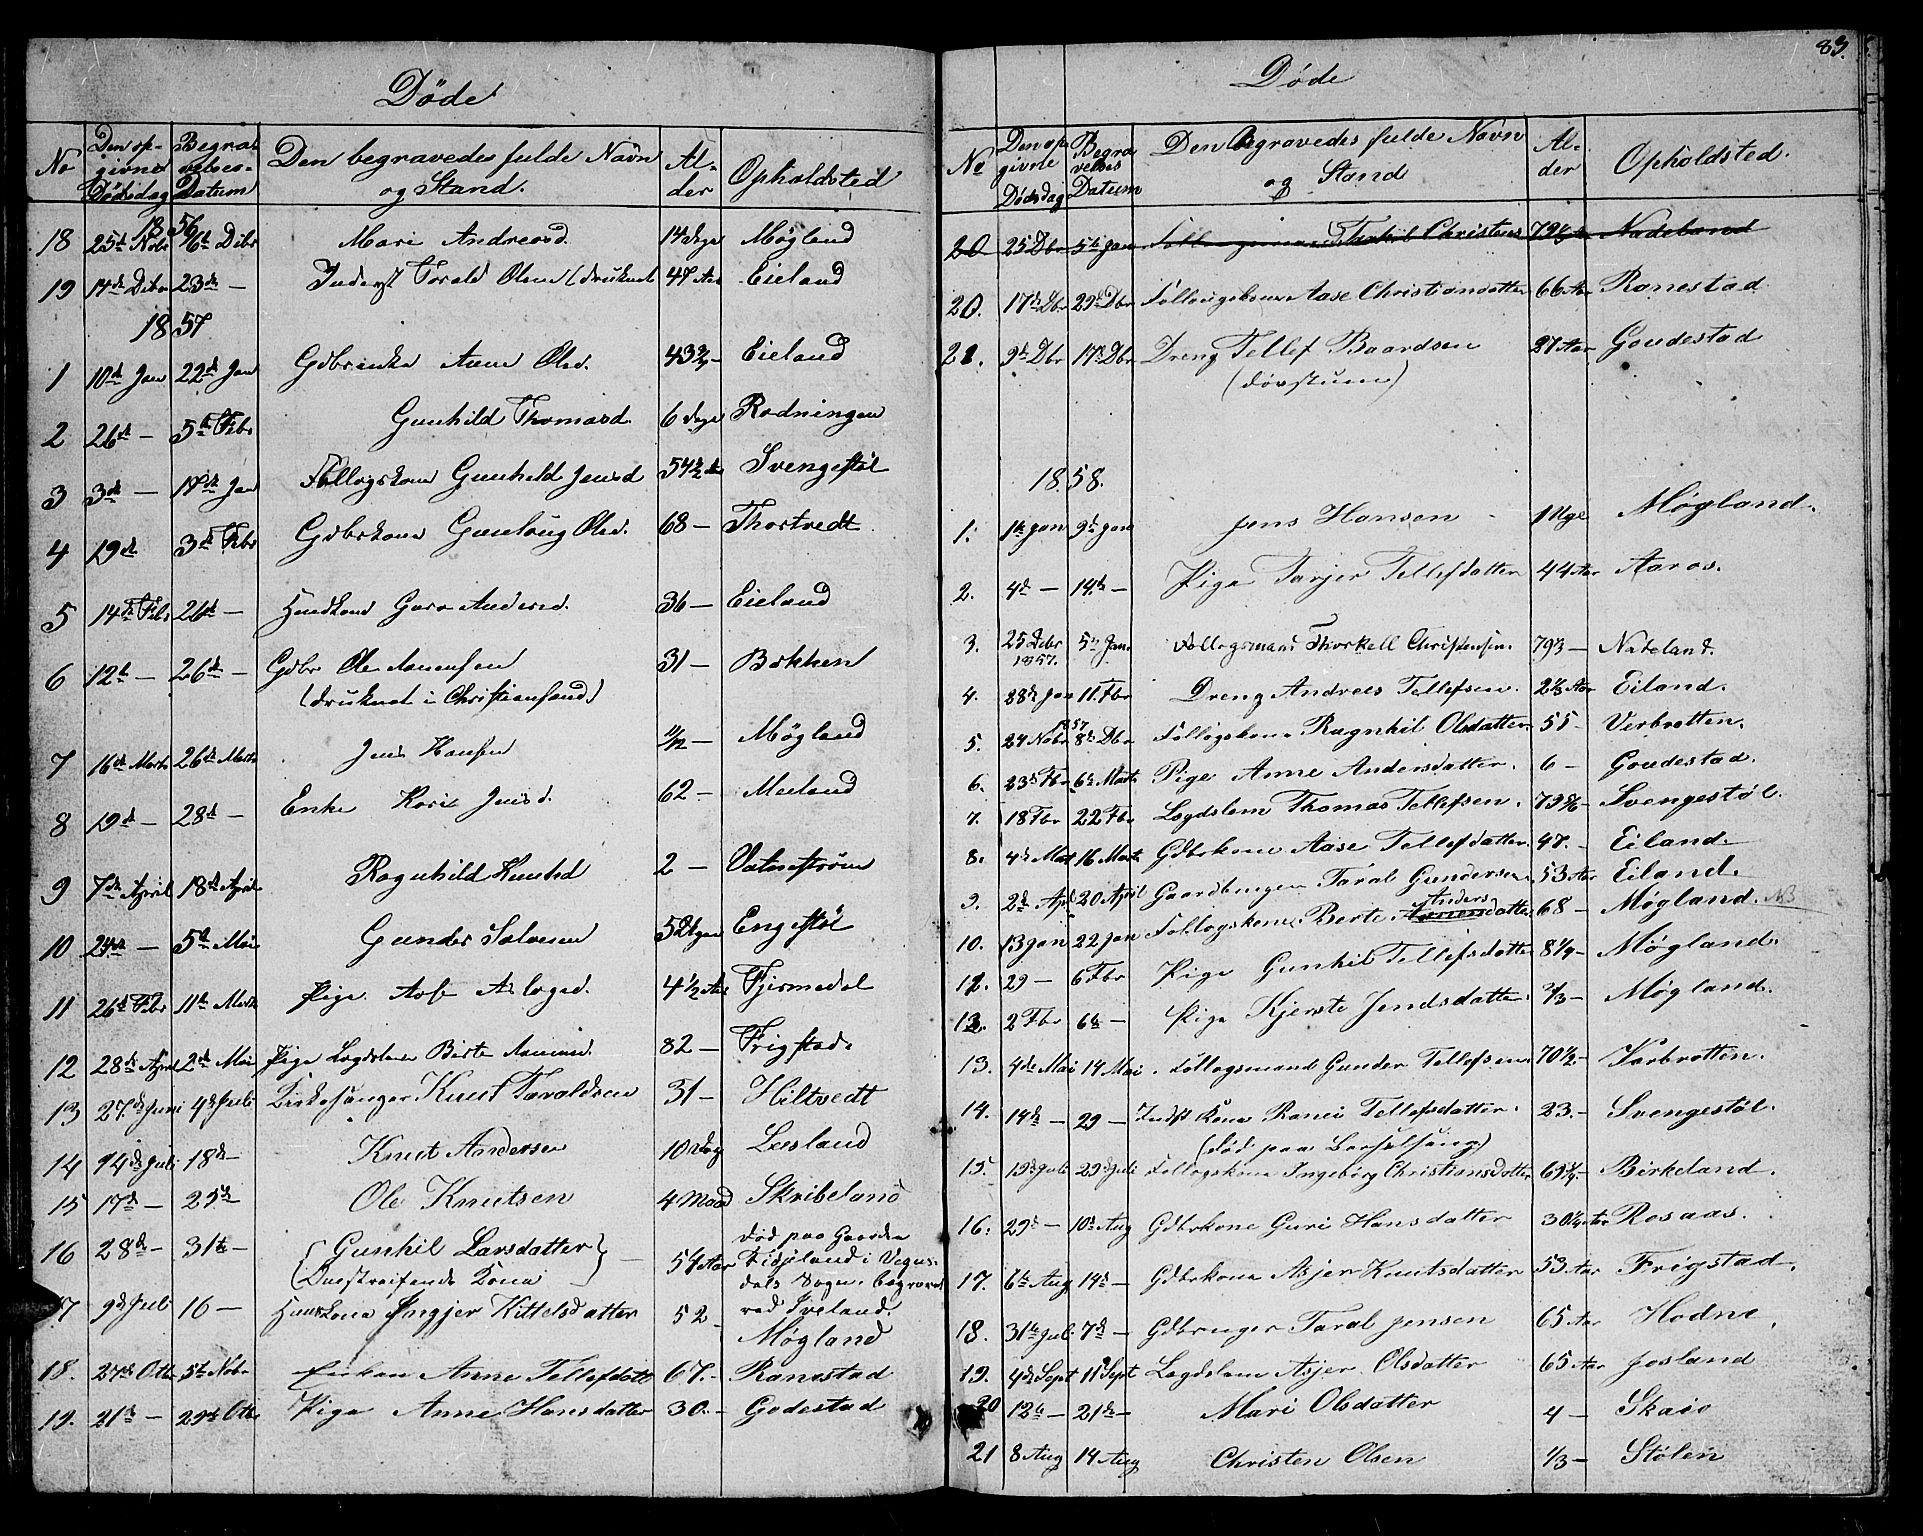 Døde
No Den op- givne Dødsdag Begra- velses- Datum Den begravedes fulde Navn og Stand. Al- der Opholdsted
1856
18 25d Nobr 6te Dbr Mari Andreasd. 14 Dage Møgland
19 14de Debr 23de — Inderst Torald Olsen (druknet 47 Aar Eieland
1857
1 10de Jan 22de Jan Gdbrenke Anne Olsd. 43 — Eieland
2 26de — 5te Febr Gunhild Thomasd. 6 Dage Rodningen
3 3de — 17de Jan Follogskone Gunhild Jensd 54½ Svengestøl
4 19de 3de Febr Gdbrkone Gunloug Olsd. 68 — Thortvedt
5 14de Febr 26de — Huuskone Guro Andersd. 36 — Eieland
6 12te — 26de — Gdbr Ole Aanensen 31 — Bakken
(druknet i Christiansand)
7 16de Marts 26de Marts Jens Hansen 11/12 — Møgland
8 19de — 28de — Enke Kari Jensd. 62 — Meeland
9 7de April 18de April Ragnhild Knutsd 2 — Vatnestrøm
10 24de — 5te Mai Gunder Salvesen 5 Uger Engestøl
11 26de Febr 11te Marts Pige Aase Aslagsd. 4½ Aar Fjermedal
12 28de April 2de Mai Pige Lægdslem Birte Aanensd. 82 — Frigstad
13 27de Juni 4de Juli Kirkesanger Knut Taraldsen 31 — Hiltvedt
14 14de Juli 18de — Knut Andersen 10 Dag Løsland
15 17de — 25de — Ole Knutsen 4 Maad Skribeland
16 28de — 31te — Gunhil Larsdatter (Omstreifende Kone) 54 Aar død paa Gaarden Fidjeland i Vegus- dals Sogn. begravet ved Iveland.
17 9de Juli 16 — Huuskone Ingjer Kittelsdatter 52 — Møgland
18. 27de Otbr 5te Nobr Enken Anne Tellefsdatt 67. — Ranestad
19. 21de — 29de Otbr Pige Anne Hansdatter 30. — Godestad
83.
Døde
No Den op givne Dødsdag Begra velses Datum Den begravedes fulde Navn og Stand Al- der Opholdsted.
20 25 Dbr 5te Jan Follogsmand Tarkil Christens 79⅓ Nadeland
20. 17de Dbr 29de Dbr Follougskone Aase Christiansdatter 66 Aar Ranestad
21. 9de Dbr 17de Dbr Dreng Tellef Baardsen 27 Aar Goudestad
(døvstum)
1858.
1. 1te Jan 9de Jan Jens Hansen 1 Uge Møgland.
2. 4de — 14de — Pige Tarjer Tellefsdatter 44 Aar Aaros.
3. 25 Debr 1857. 5te Jan. Follogsmand Thorkell Christensen. 79⅓ — Nateland.
4. 28de Jan 11. Fbr Dreng Andreas Tellefsen. 2⅓ Aar Eiland.
5. 24 Nobr 1857 8de Dbr Follogskone Ragnhil Olsdatter 55 — Verbrotten.
6. 23de Fbr 6te Marts Pige Anne Andersdatter. 6 — Goudestad.
7. 18 Fbr 22 Fbr Lægdslem Thomas Tellefsen. 79 — Svengestøl.
8. 4de Mart 16 Marts Gdbrkone Aase Tellefsdatter 47. — Eiland.
9. 2de Apr 20 April Gaardbruger Taral Gundersen. 53 Aar Eiland.
10. 13 Jan 22 Jan Follogskone Berte Anders datter 68 — Møgland. NB
11. 29 — 6 Fbr Pige Gunhil Tellefsdatter 8 — Møgland.
12. 2 Fbr 6te — Pige Kjersti Jensdatter. ⅔ — Møgland.
13. 4de Mai 14 Mai Follogsmand Gunder Tellefsen 70½ — Verbrotten.
14. 14de — 29 — Indst Kone Ranei Tellefsdatter. 23. — Svengestøl.
(død paa Barselseng)
15. 19de Juli 29de Juli Follogskone Ingeborg Christiansdatter 69¼ — Birkeland.
16. 29de — 10de Aug Gdbrkone Guri Hansdatter 30¼ Aar Rosaas.
17. 6te Aug 14de — Gdbrkone Asjer Knutsdatter 53 Aar Frigstad.
18. 31te Juli 7de — Gdbruger Taral Jensen 65 Aar Hodne.
19. 4de Sept 11te Sept Lægdslem Asjer Olsdatter 65 Aar Josland
20 12te — 21de — Mari Olsdatter 4 — Skaio
21 8 Aug 14 Aug Christen Olsen ⅓ — Stølen